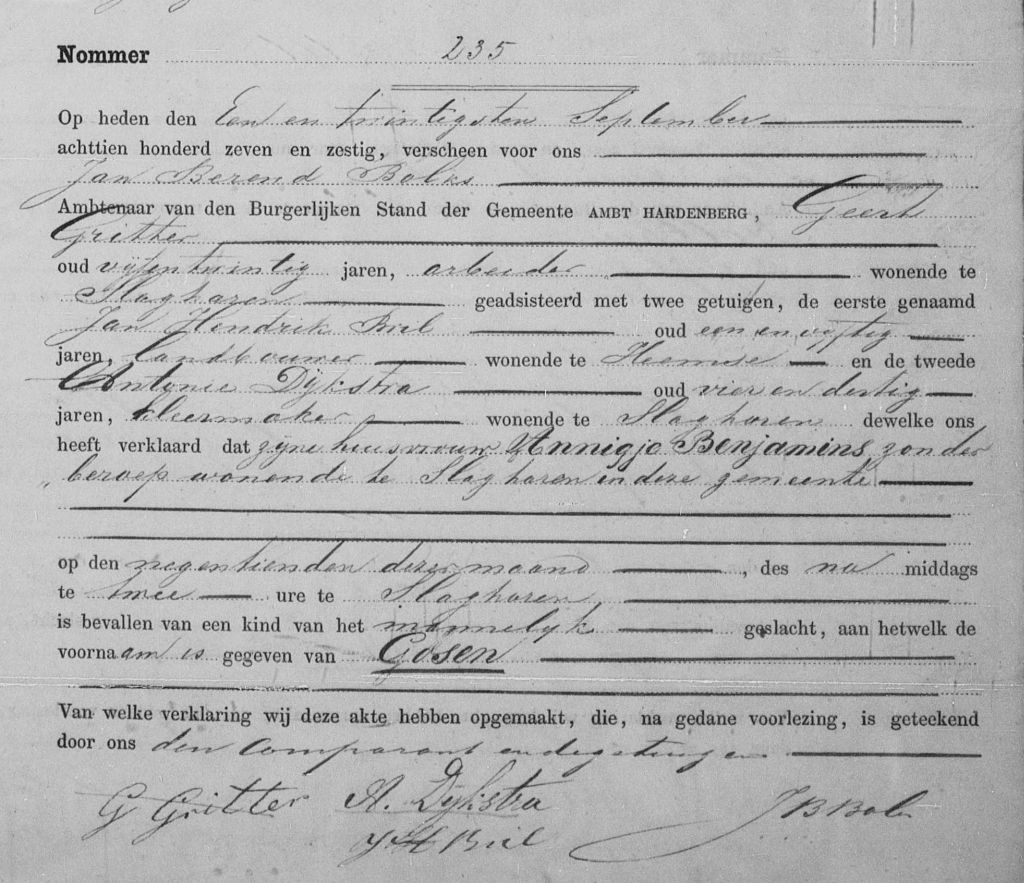 Nommer 235
Op heden den Een en twintigsten September
achttien honderd zeven en zestig, verscheen voor ons
Jan Berend Bolks
Ambtenaar van den Burgerlijken Stand der Gemeente AMBT HARDENBERG, Geert
Gritter
oud vijfentwintig jaren, arbeider wonende te
Slagharen geadsisteerd met twee getuigen, de eerste genaamd
Jan Hendrik oud een en vyftig
jaren, landbouwer wonende te Heemse en de tweede
Antonie Dijkstra oud vier en dertig
jaren, kleermaker wonende te Slagharen dewelke ons
heeft verklaard dat zyne huisvrouw Annigje Benjamins, zonder
beroep wonende te Slagharen in deze gemeente
op den negentienden dezer maand, des na middags
te twee ure te Slagharen
is bevallen van een kind van het mannelyk geslacht, aan hetwelk de
voornaam is gegeven van Gosen
Van welke verklaring wij deze akte hebben opgemaakt, die, na gedane voorlezing, is geteekend
door ons den comparant en de getuigen
G Gritter A. Dijkstra J B Bolks
J H